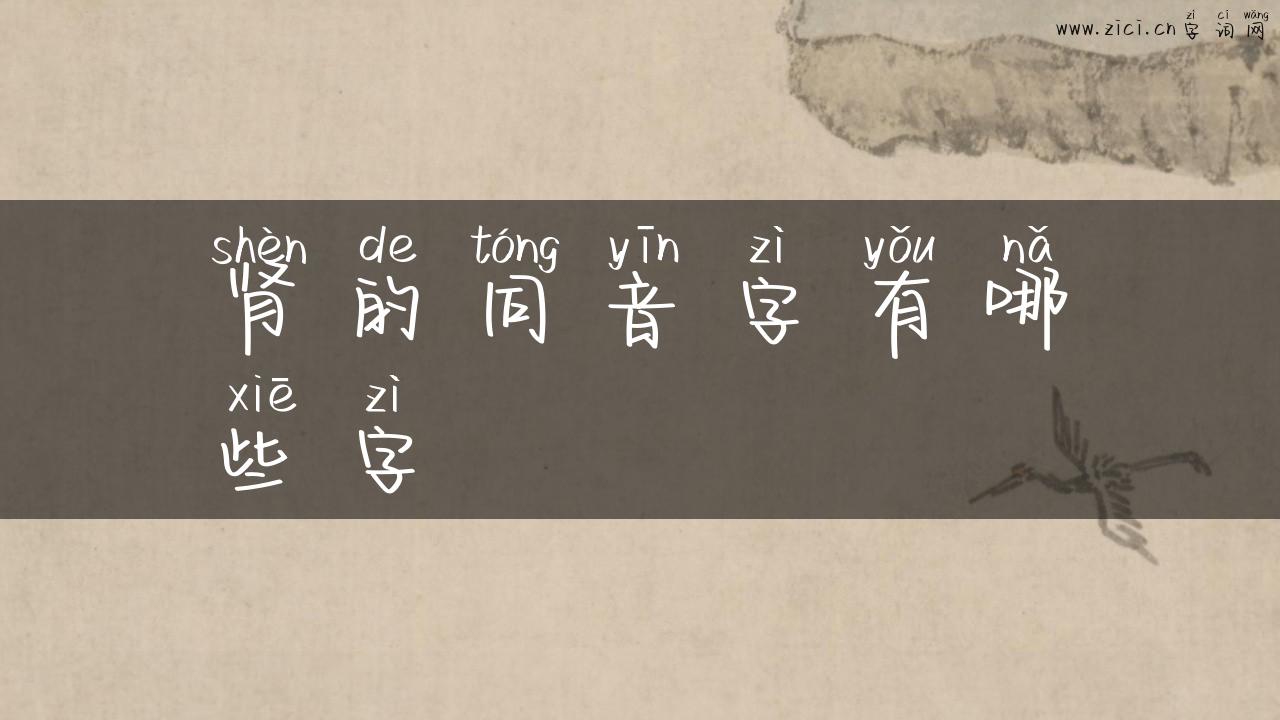 www.zici.cn 字词网
zì cí wǎng
shèn de tóng yīn zì yǒu nǎ
肾的同音字有哪
xiē zì
些字